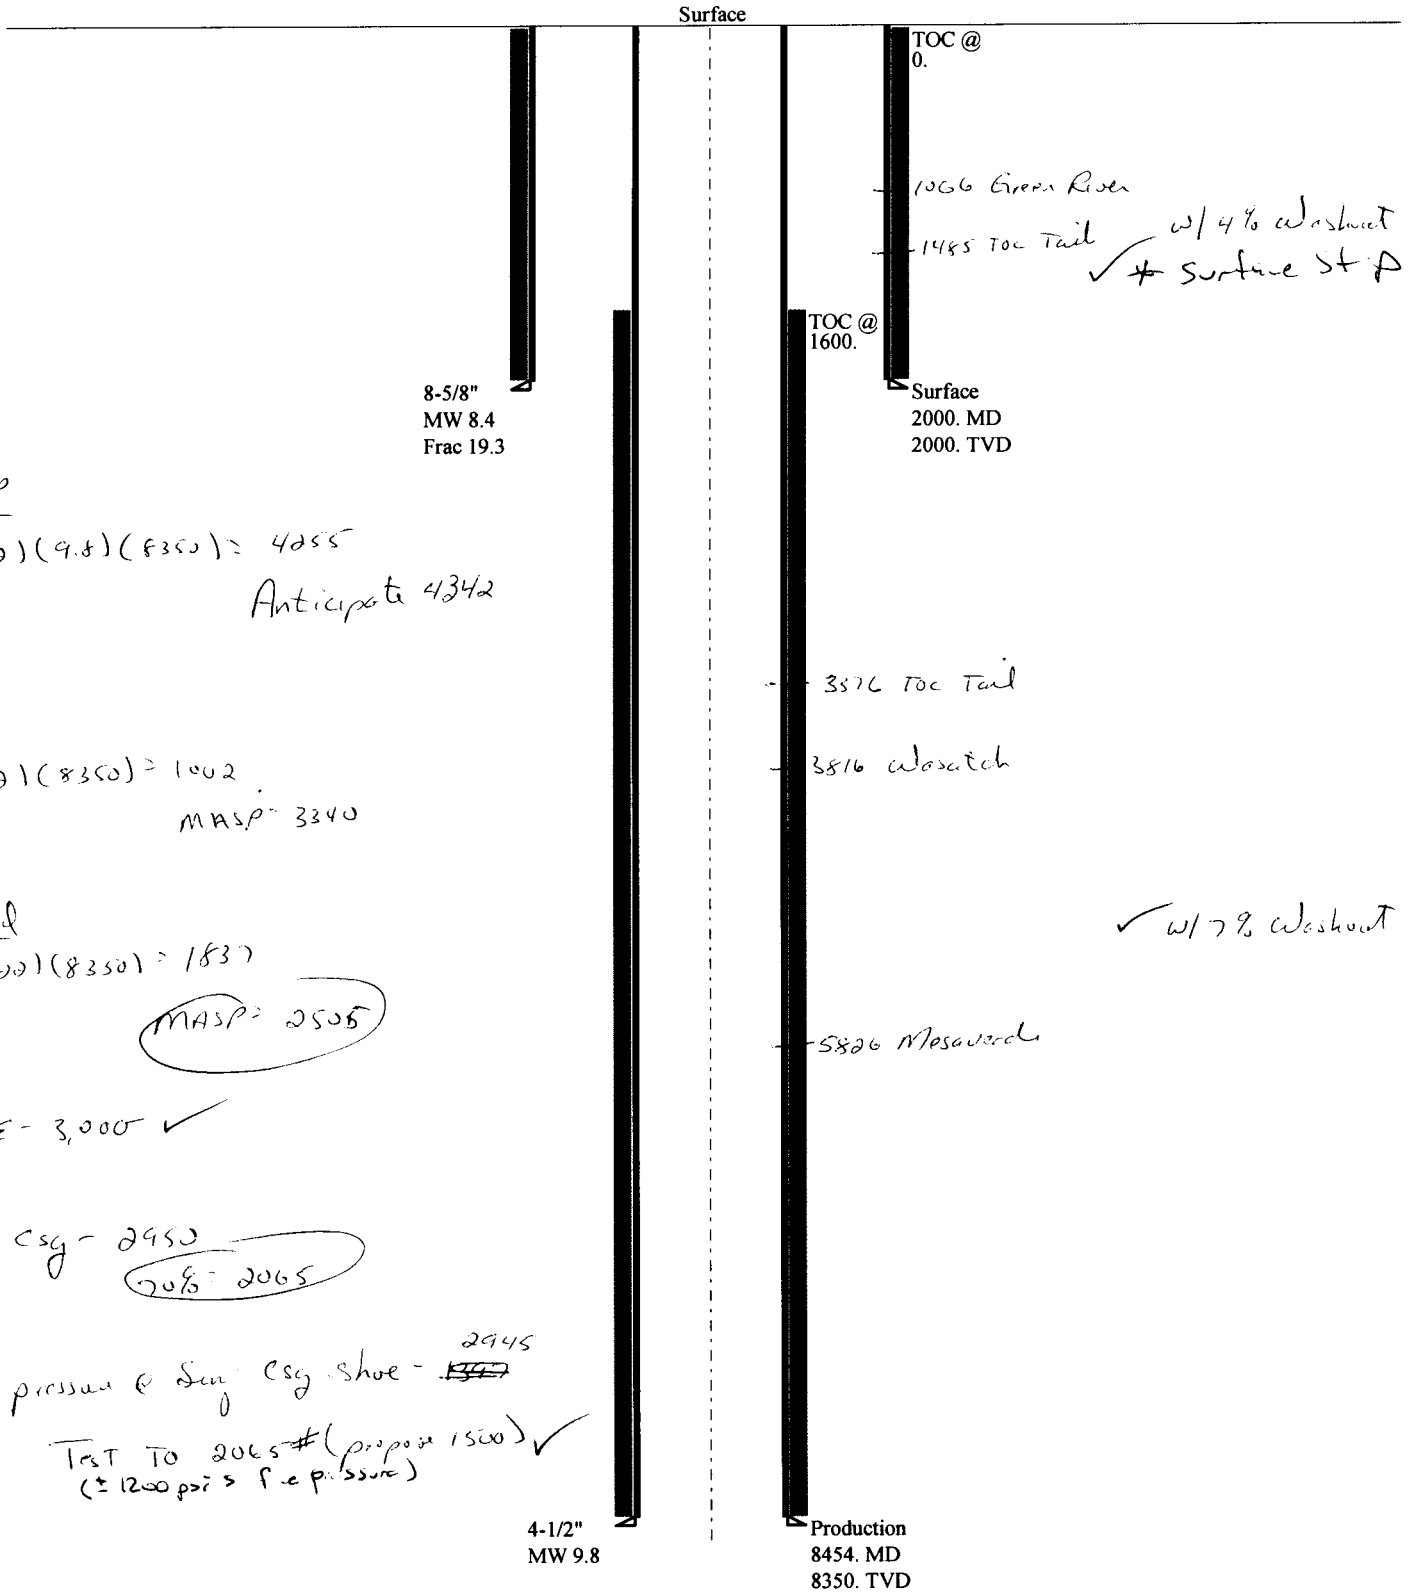 Surface
TOC @
0.
1066 Green River
1485 TOC Tail
w/ 4% Washout
* Surface st
TOC @
1600.
8-5/8"
MW 8.4
Frac 19.3
Surface
2000. MD
2000. TVD
)(9.8)(8350)= 4255
Anticipate 4342
3576 TOC Tail
)(8350)= 1002
MASP- 3340
3816 Wasatch
)(8350)= 1837
MASP= 2505
✓ w/ 7% Washout
5826 Mesaverde
- 3,000 ✓
csg - 2950
70%= 2065
pressure @ Surf csg shoe - 2945
Test To 2065# (propose 1500) ✓
(± 1200 psi
4-1/2"
MW 9.8
Production
8454. MD
8350. TVD